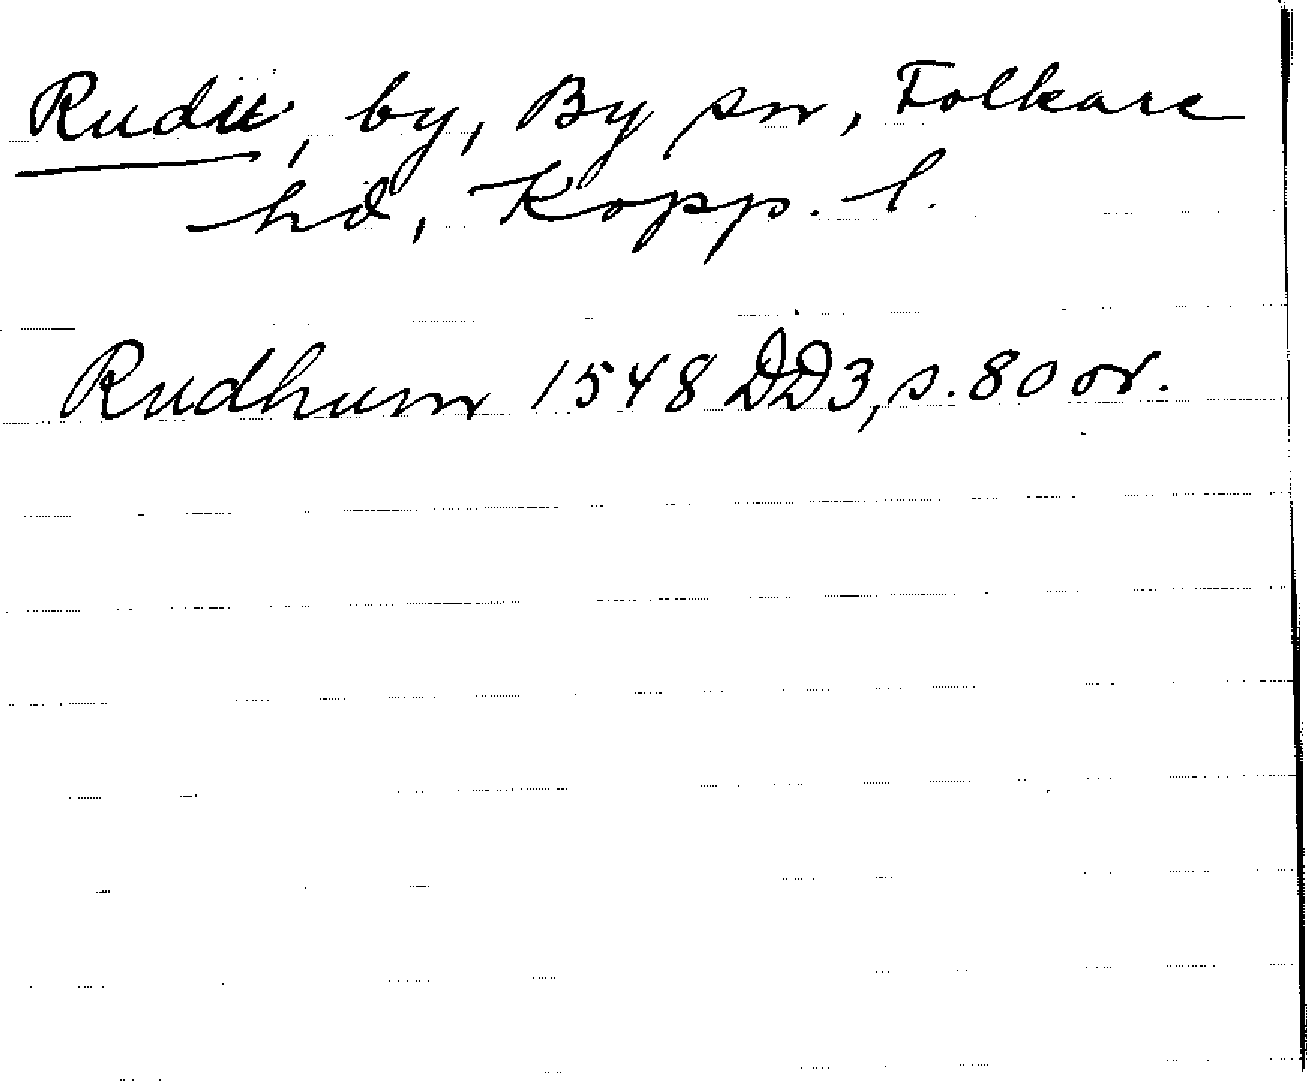 Rudu, by, By sn, Folkare
hd, Kopp. l.
Rudhum 1548 DD3, s. 80 or.